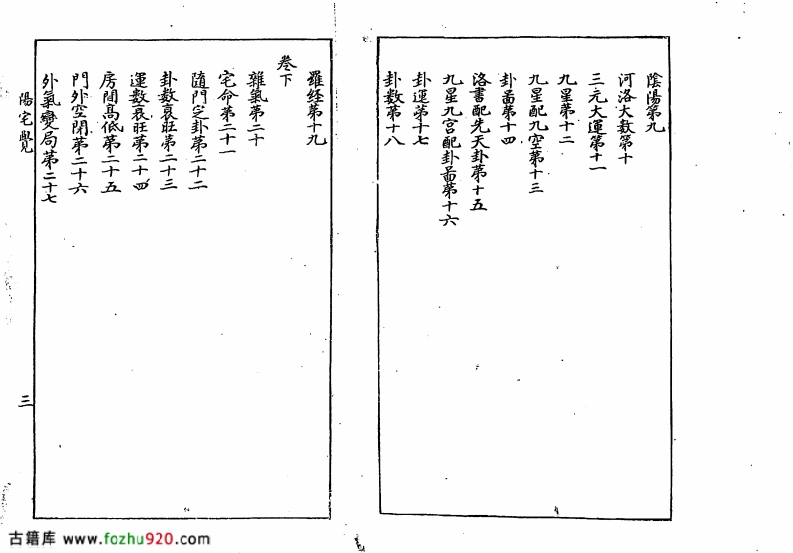 陰陽第九
河洛大数第十
三元大運第十一
九星第十二
九星配九空第十三
卦畐第十四
洛書配先天卦第十五
九星九宫配卦畐第十六
卦運第十七
卦数第十八
羅经第十九
卷下
雜氣第二十
宅命第二十一
随门定卦第二十二
卦数衰旺第二十三
運数衰旺第二十四
房間高低第二十五
門外空閉第二十六
外氣變局第二十七
陽宅覺
三
古籍库 www.fozhu920.com